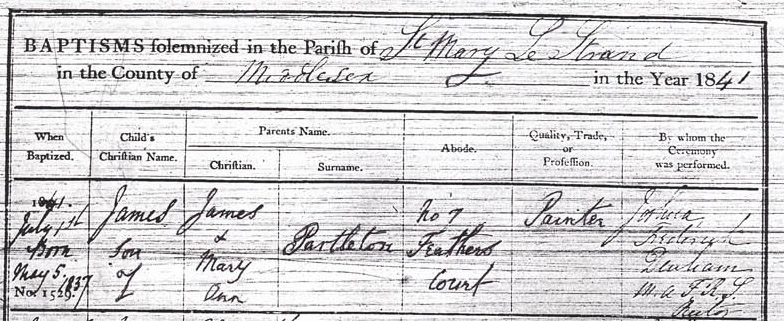 BAPTISMS solemnized in the Parish of St Mary Le Strand
in the County of Middlesex in the Year 1841
When Baptized.
Child's Christian Name.
Parents' Name.
Christian.
Surname.
Abode.
Quality, Trade, or Profession.
By whom the Ceremony was performed.
1841.
July 1st
Born
May 5.
1837
No. 1529.
James
Son
of
James
&
Mary
Ann
Partleton
No 7
Feathers
Court
Painter
Joshua
Frederick
Denham
M.A F.R.S.
Rector